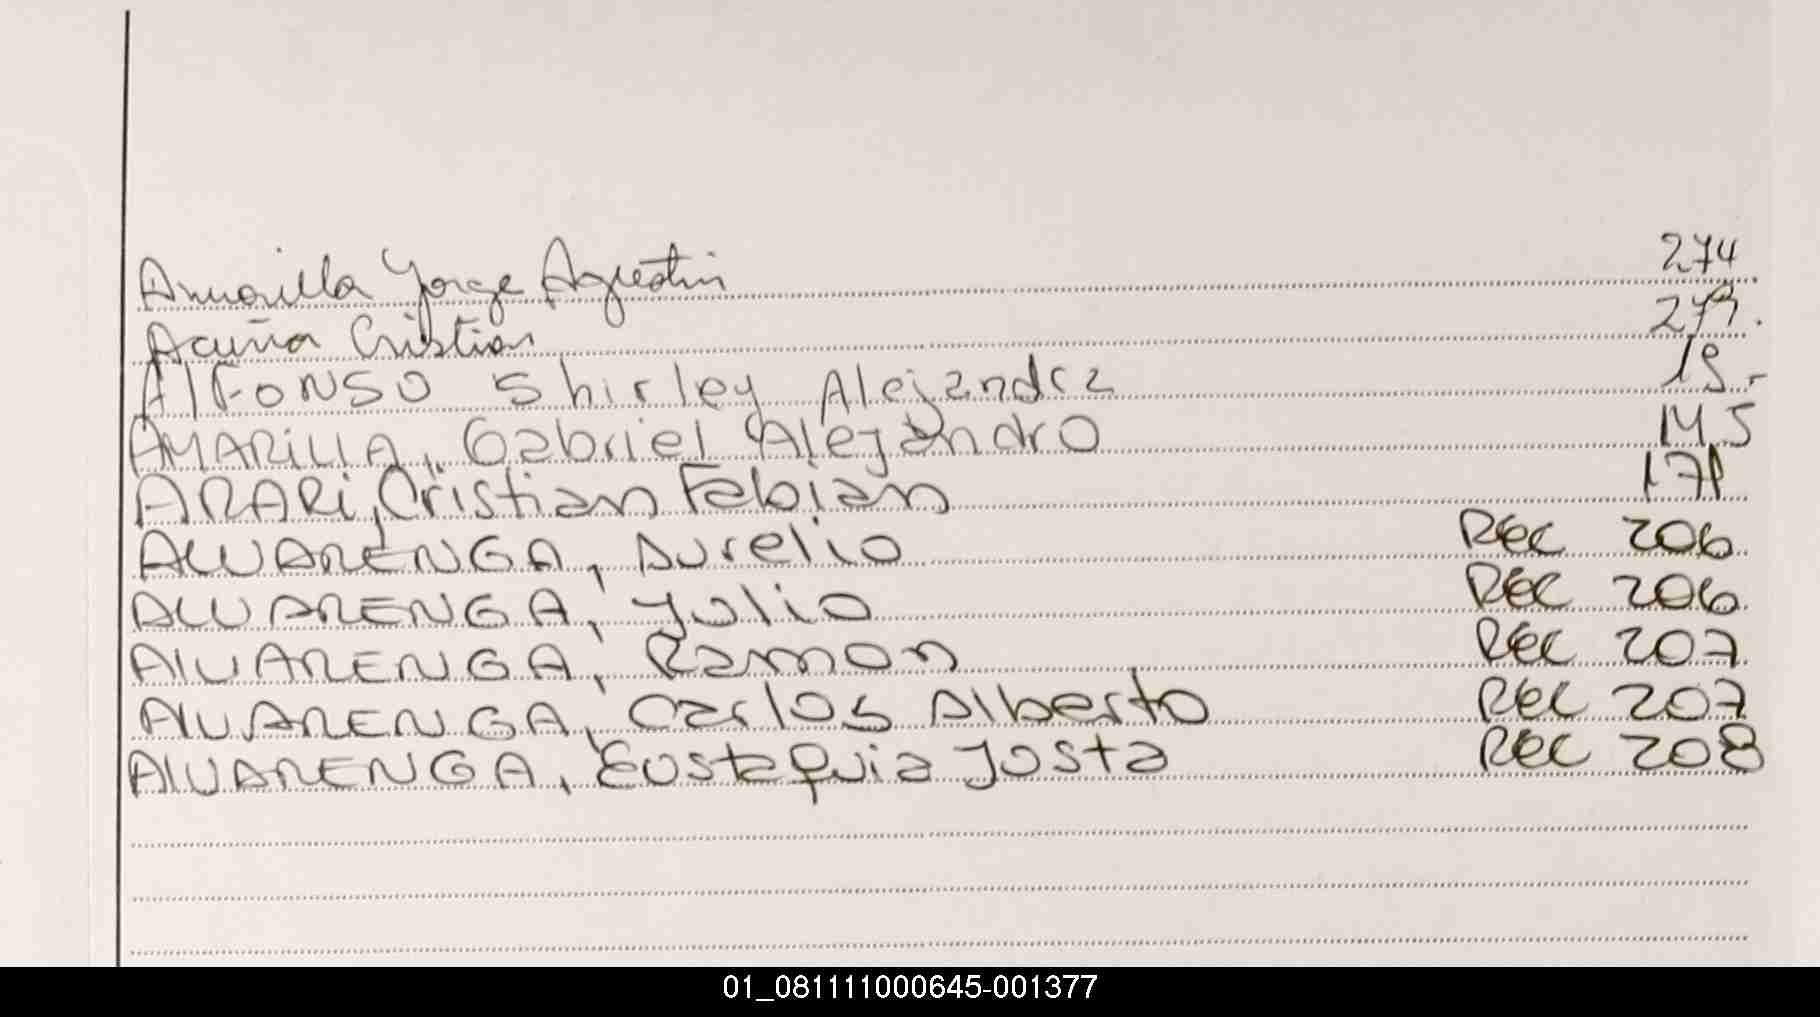 Amarilla Jorge Agustin 274
Acuña Cristian 279.
AlFONSO Shirley Alejandra 19.-
AMARILLA, Gabriel Alejandro 145
ARARi, Cristian Fabian 171
ALVARENGA, Aurelio REC 206
ALVARENGA, Julio REC 206
AlVARENGA, Ramon REC 207
AlVARENGA, Carlos Alberto REC 207
AlVARENGA, Eustaquia Justa REC 208
01_081111000645-001377